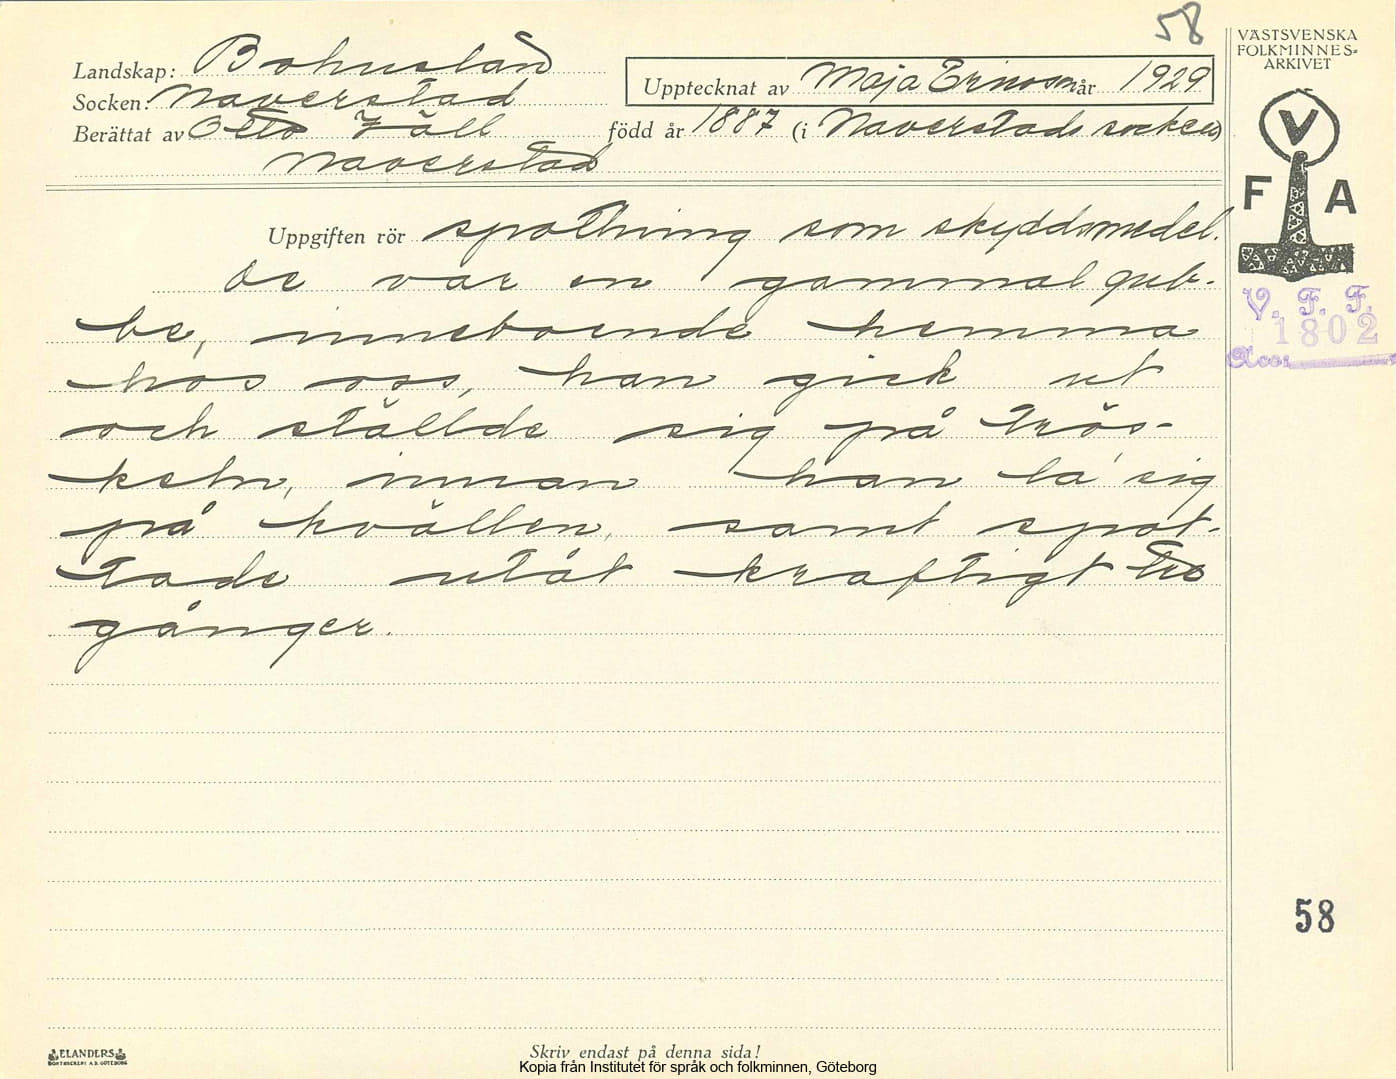 58
VÄSTSVENSKA
FOLKMINNES-
ARKIVET
Landskap: Bohuslän
Upptecknat av Maja Ericson år 1929
Socken: Naverstad
Berättat av Otto Häll född år 1887 (i Naverstads socken)
Naverstad
V
F A
Uppgiften rör spottning som skyddsmedel.
De var en gammal gub-
be, inneboende hemma
hos oss, han gick ut
och ställde sig på trös-
keln, innan han la' sig
på kvällen, samt spot-
tade utåt kraftigt tre
gånger.
V. F. F.
1802
Acc.
58
ELANDERS
BOKTRYCKERI A.B. GÖTEBORG
Skriv endast på denna sida!
Kopia från Institutet för språk och folkminnen, Göteborg